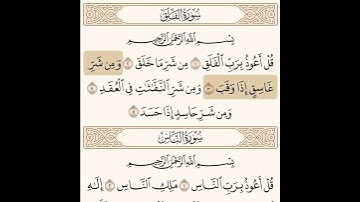 سُورَةُ الفَلَقِ
بِسْمِ اللَّهِ الرَّحْمَٰنِ الرَّحِيمِ
قُلْ أَعُوذُ بِرَبِّ الْفَلَقِ ١ مِن شَرِّ مَا خَلَقَ ٢ وَمِن شَرِّ
غَاسِقٍ إِذَا وَقَبَ ٣ وَمِن شَرِّ النَّفَّاثَاتِ فِي الْعُقَدِ ٤
وَمِن شَرِّ حَاسِدٍ إِذَا حَسَدَ ٥
سُورَةُ النَّاسِ
بِسْمِ اللَّهِ الرَّحْمَٰنِ الرَّحِيمِ
قُلْ أَعُوذُ بِرَبِّ النَّاسِ ١ مَلِكِ النَّاسِ ٢ إِلَٰهِ